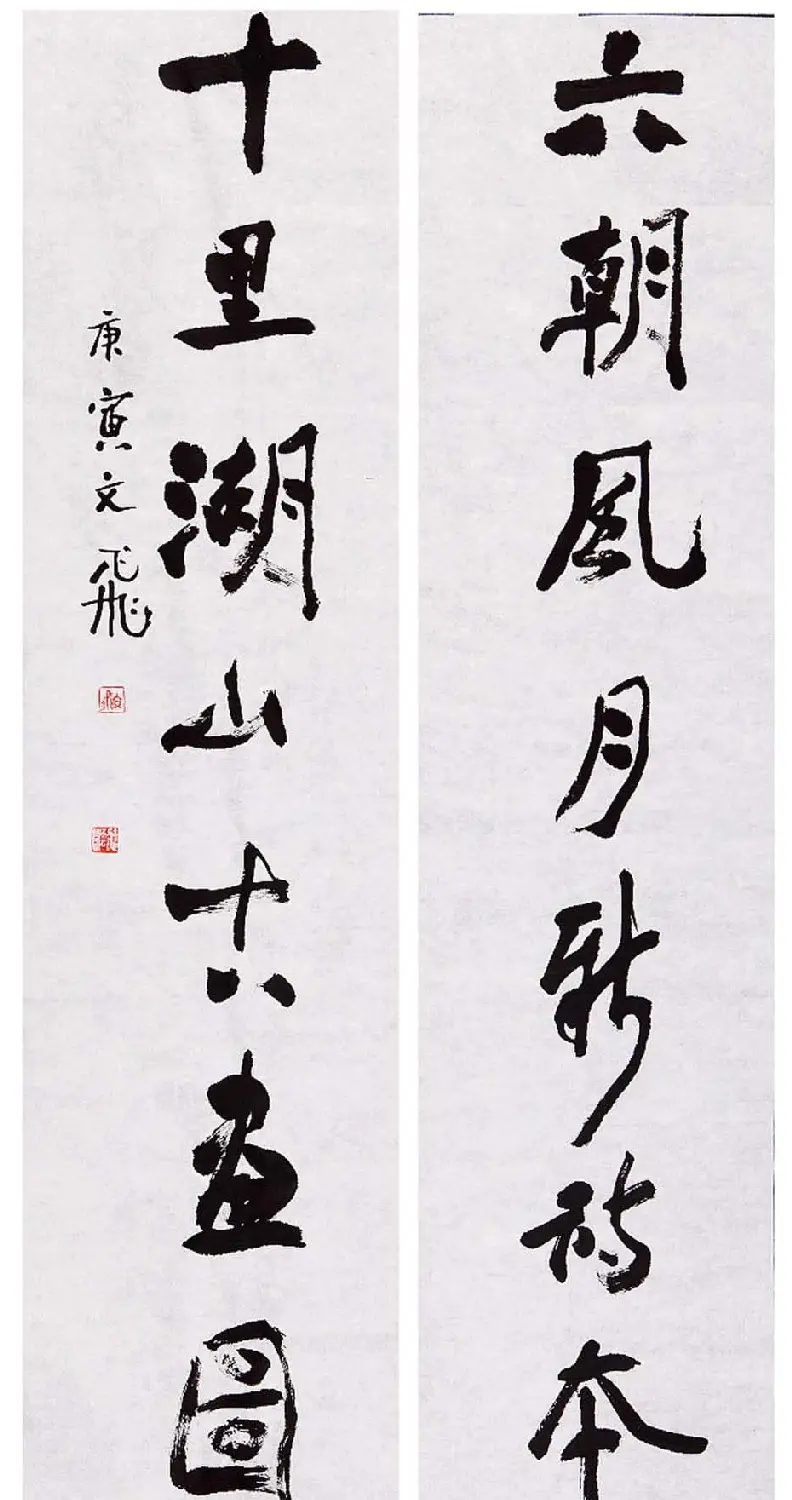 六朝風月新詩本
十里湖山畫圖
庚寅文飛